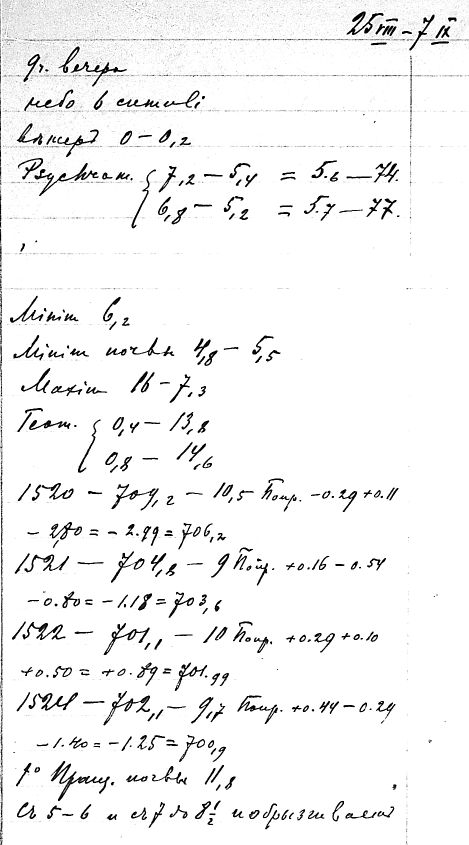 25 VIII – 7 IX
9ч. вечера
небо в
вѣтеръ 0 – 0,2
Psychrom. 7,2 – 5,4 = 5.6 – 74.
6,8 – 5,2 = 5.7 – 77.
Minim 6,2
Minim почвы 4,8 – 5,5
Maxim 16 – 7,3
Геот. 0,4 – 13,8
0,8 – 14,6
1520 – 709,2 – 10,5 Попр. – 0.29 + 0.11
– 2,80 = – 2.99 = 706,2
1521 – 704,8 – 9 Попр. + 0.16 – 0.54
– 0.80 = – 1.18 = 703,6
1522 – 701,1 – 10 Попр. + 0.29 + 0.10
+ 0.50 = + 0.89 = 701.99
1524 – 702,1 – 9,7 Попр. + 0.44 – 0.29
– 1.40 = – 1.25 = 700,9
t° почвы 11,8
съ 5 – 6 и съ 7 до 8 1/2 побрызгиваетъ